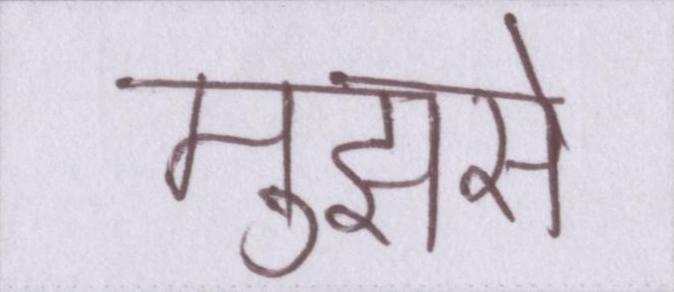 मुझसे